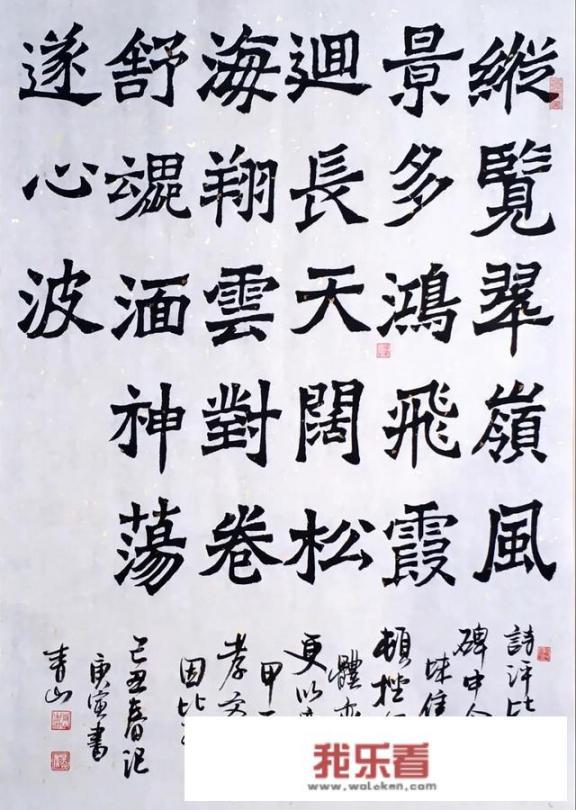 縱覽翠嶺風
景多鴻飛霞
迴長天闊松
海翔雲對卷
舒湎神蕩
遂心波
詩評比
碑中
味雋
頓挫
體亦
更以
甲
孝文
因比
己丑春記
庚寅書
青山
我乐看
www.wolekan.com